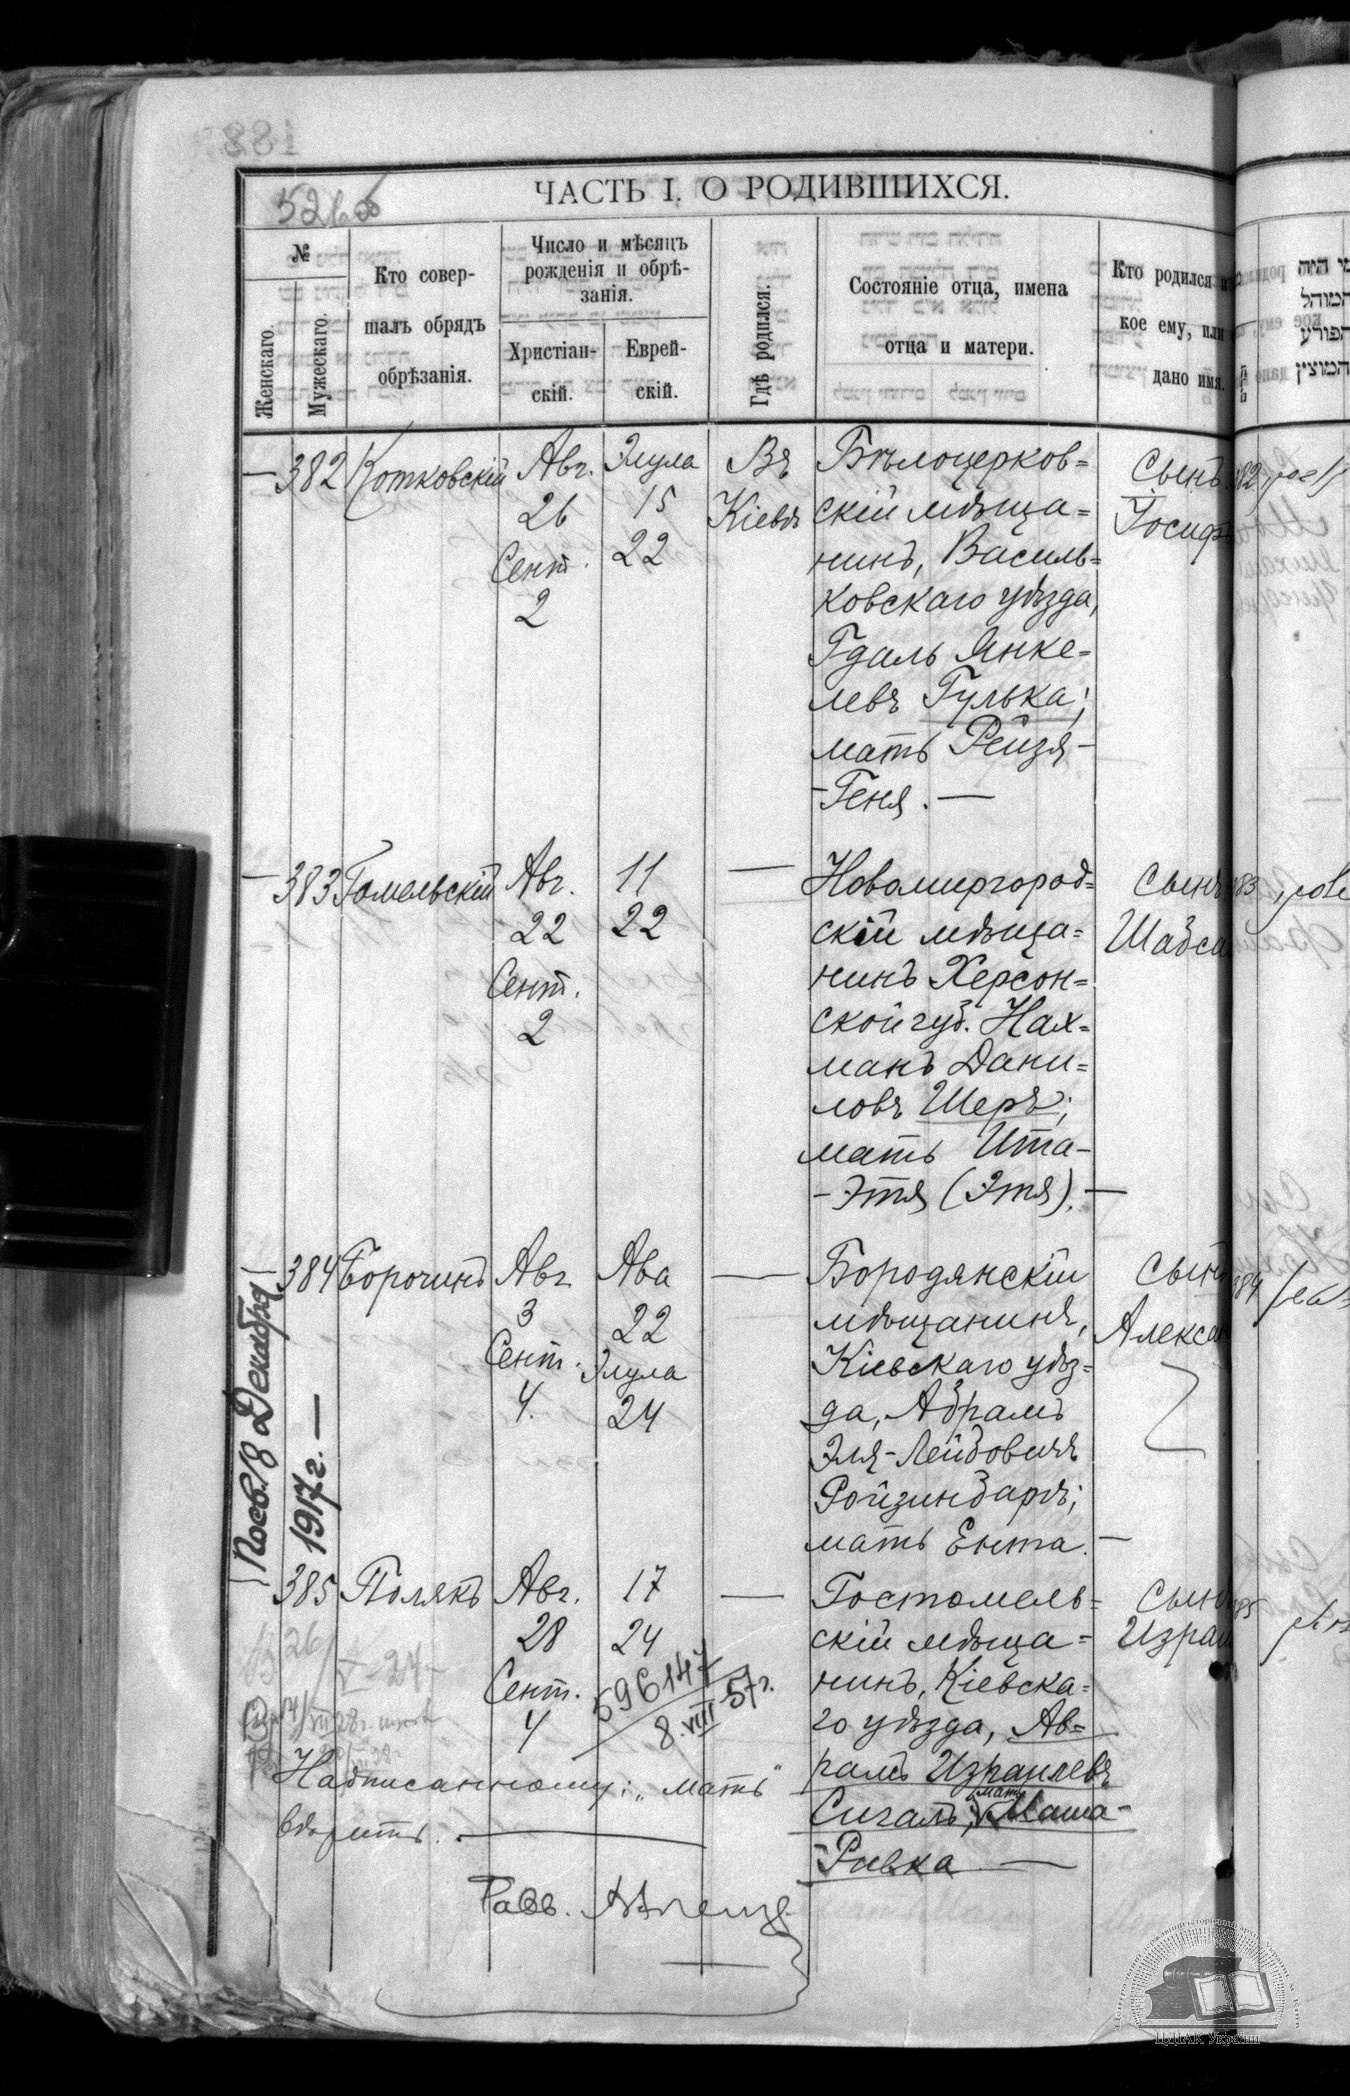 ЧАСТЬ I. О РОДИВШИХСЯ.
№
Женскаго.
Мужескаго.
Кто совер-
шалъ обрядъ
обрѣзанія.
Число и мѣсяцъ
рожденія и обрѣ-
занія.
Христіан-
скій.
Еврей-
скій.
Гдѣ родился.
Состояніе отца, имена
отца и матери.
Кто родился и
кое ему, или
дано имя.
— 382 Котковскій
Авг.
26
Сент.
2
Элула
15
22
Въ
Кіевѣ
Бѣлоцерков=
скій мѣща=
нинъ, Василь=
ковскаго уѣзда,
Гдаль Янке=
левъ Гулька;
мать Рейзя-
-Геня. —
Сынъ
Іосифъ
— 383 Гомельскій
Авг.
22
Сент.
2
11
22
—
Новомиргород=
скій мѣща=
нинъ Херсон=
ской губ. Нах=
манъ Дани=
ловъ Шеръ;
мать Ита-
-Этя (Этя). —
Сынъ
Шабса
— 384 Борочинъ
Авг.
3
Сент.
4.
Ава
22
Элула
24
—
Бородянскій
мѣщанинъ,
Кіевскаго уѣз=
да, Абрамъ
Эля-Лейбовичъ
Ройзинбаръ;
мать Ента. —
Сынъ
Алексан
Посв. 18 Декабря
1917 г. —
385 Полякъ
Авг.
28
Сент.
4
17
24
—
Гостомель=
скій мѣща=
нинъ, Кіевска=
го уѣзда, Ав=
рамъ Израилевъ
Сигалъ; мать Маша-
-Ривка —
Сынъ
Израи
596147
8.VIII 57 г.
Надписанному: "мать"
вѣрить. —
Равв.
המוהל
הפורע
המוצץ
ЦДІАК України